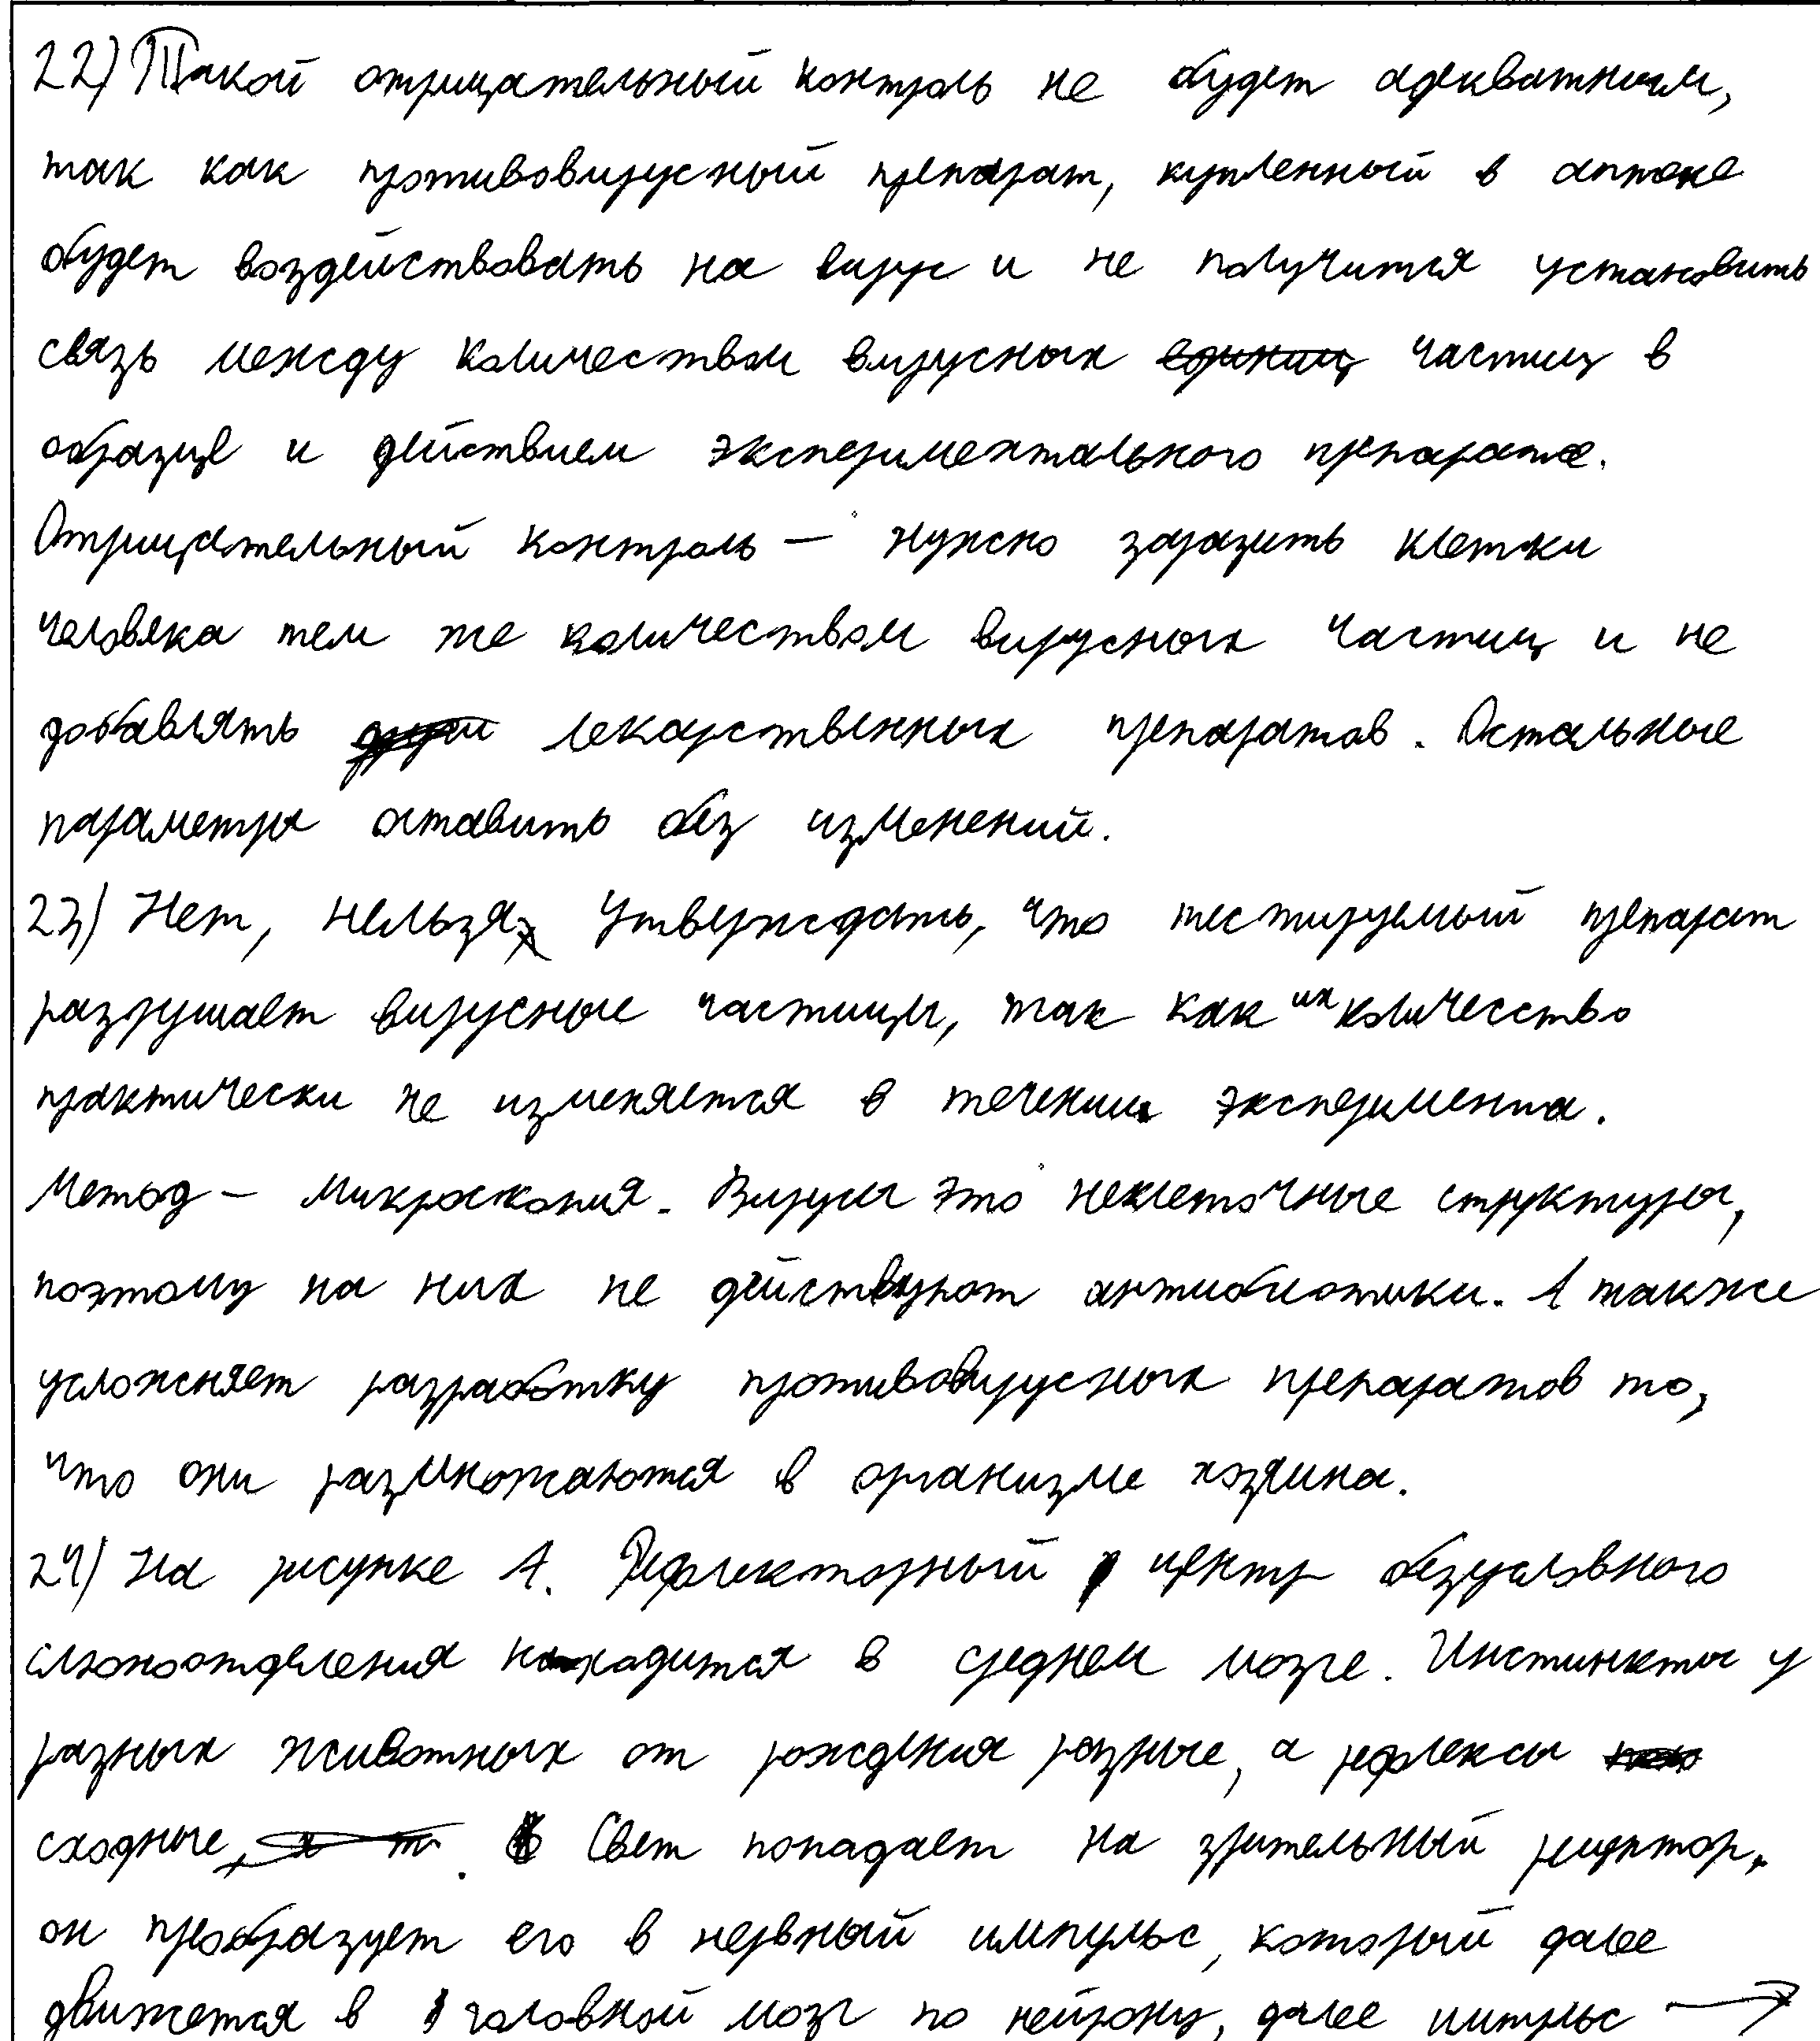 22) Такой отрицательный контроль не будет адекватным,
так как противовирусный препарат, купленный в аптеке
будет воздействовать на вирус и не получится установить
связь между количеством вирусных единиц частиц в
образце и действием экспериментального препарата.
Отрицательный контроль — нужно заразить клетки
человека тем же количеством вирусных частиц и не
добавлять лекарственных препаратов. Остальные
параметры оставить без изменений.
23) Нет, нельзя утверждать, что тестируемый препарат
разрушает вирусные частицы, так как их количесство
практически не изменяется в течении эксперимента.
Метод – микроскопия. Вирусы это неклеточные структуры,
поэтому на них не действуют антибиотики. А также
усложняет разработку противовирусных препаратов то,
что они размножаются в организме хозяина.
24) На рисунке 1. Рефлекторный центр безусловного
слюноотделения находится в среднем мозге. Инстинкты у
разных животных от рождения разные, а рефлексы
сходные. Свет попадает на зрительный рецептор,
он преобразует его в нервный импульс, который далее
движется в головной мозг по нейрону, далее импульс →